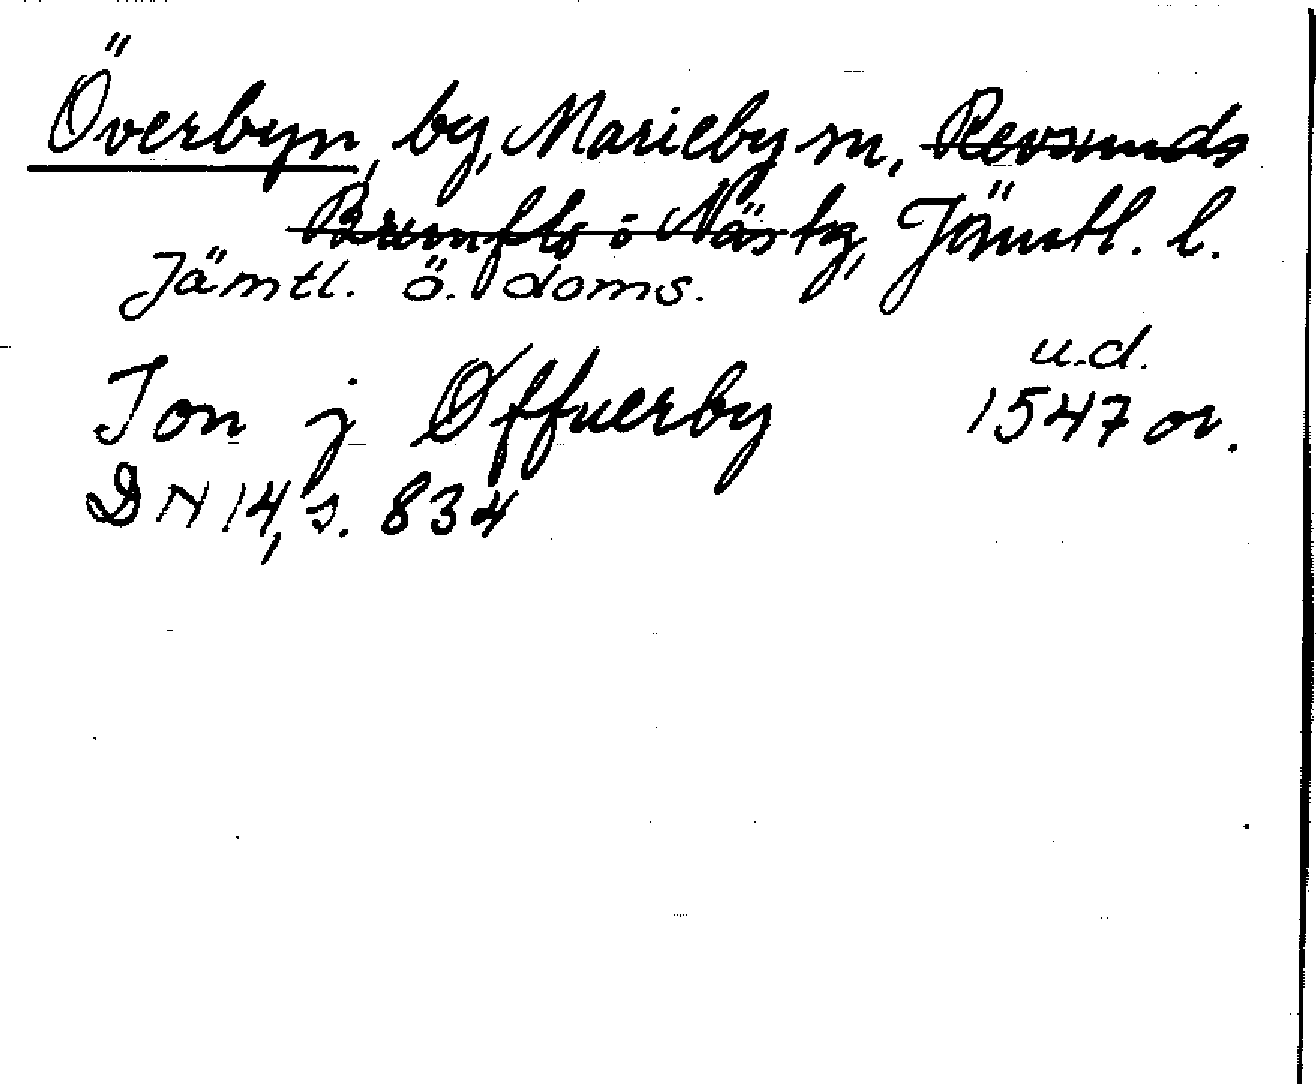 Överbyn, by, Marieby sn, Revsunds
Brunflo o Näs tg, Jämtl. l.
Jämtl. ö. doms.
u.d.
Jon j Øffuerby 1547 or.
DN 14, s. 834